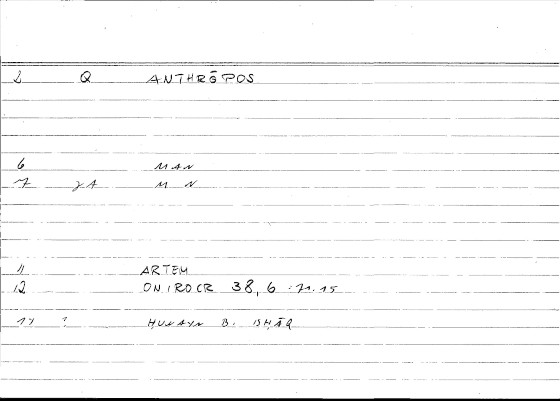 2 Q ANTHRŌPOS
6 MAN
7 γA M N
11 ARTEM
12 ONIROCR 38, 6 :21.15
14 ? ḤUNAYN B. ISḤĀQ